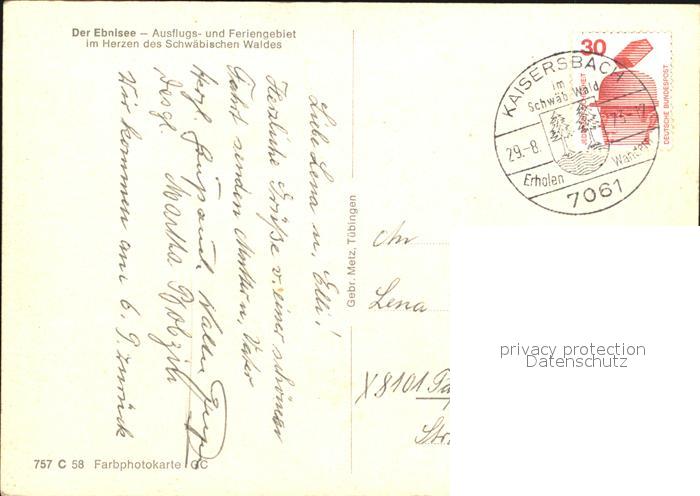 Der Ebnisee – Ausflugs- und Feriengebiet
im Herzen des Schwäbischen Waldes
Liebe Lena u. Elli!
Herzliche Grüße v. einer schönen
Fahrt senden Mutter u. Vater
Herzl.
Desgl. Martha
Wir kommen am 6. 9. zurück
757 C 58 Farbphotokarte GC
Gebr. Metz, Tübingen
KAISERSBACH
im
Schwäb. Wald
29.-8.
Erholen
Wandern
7061
30
DEUTSCHE BUNDESPOST
An
Lena
X8101
Str.
privacy protection
Datenschutz